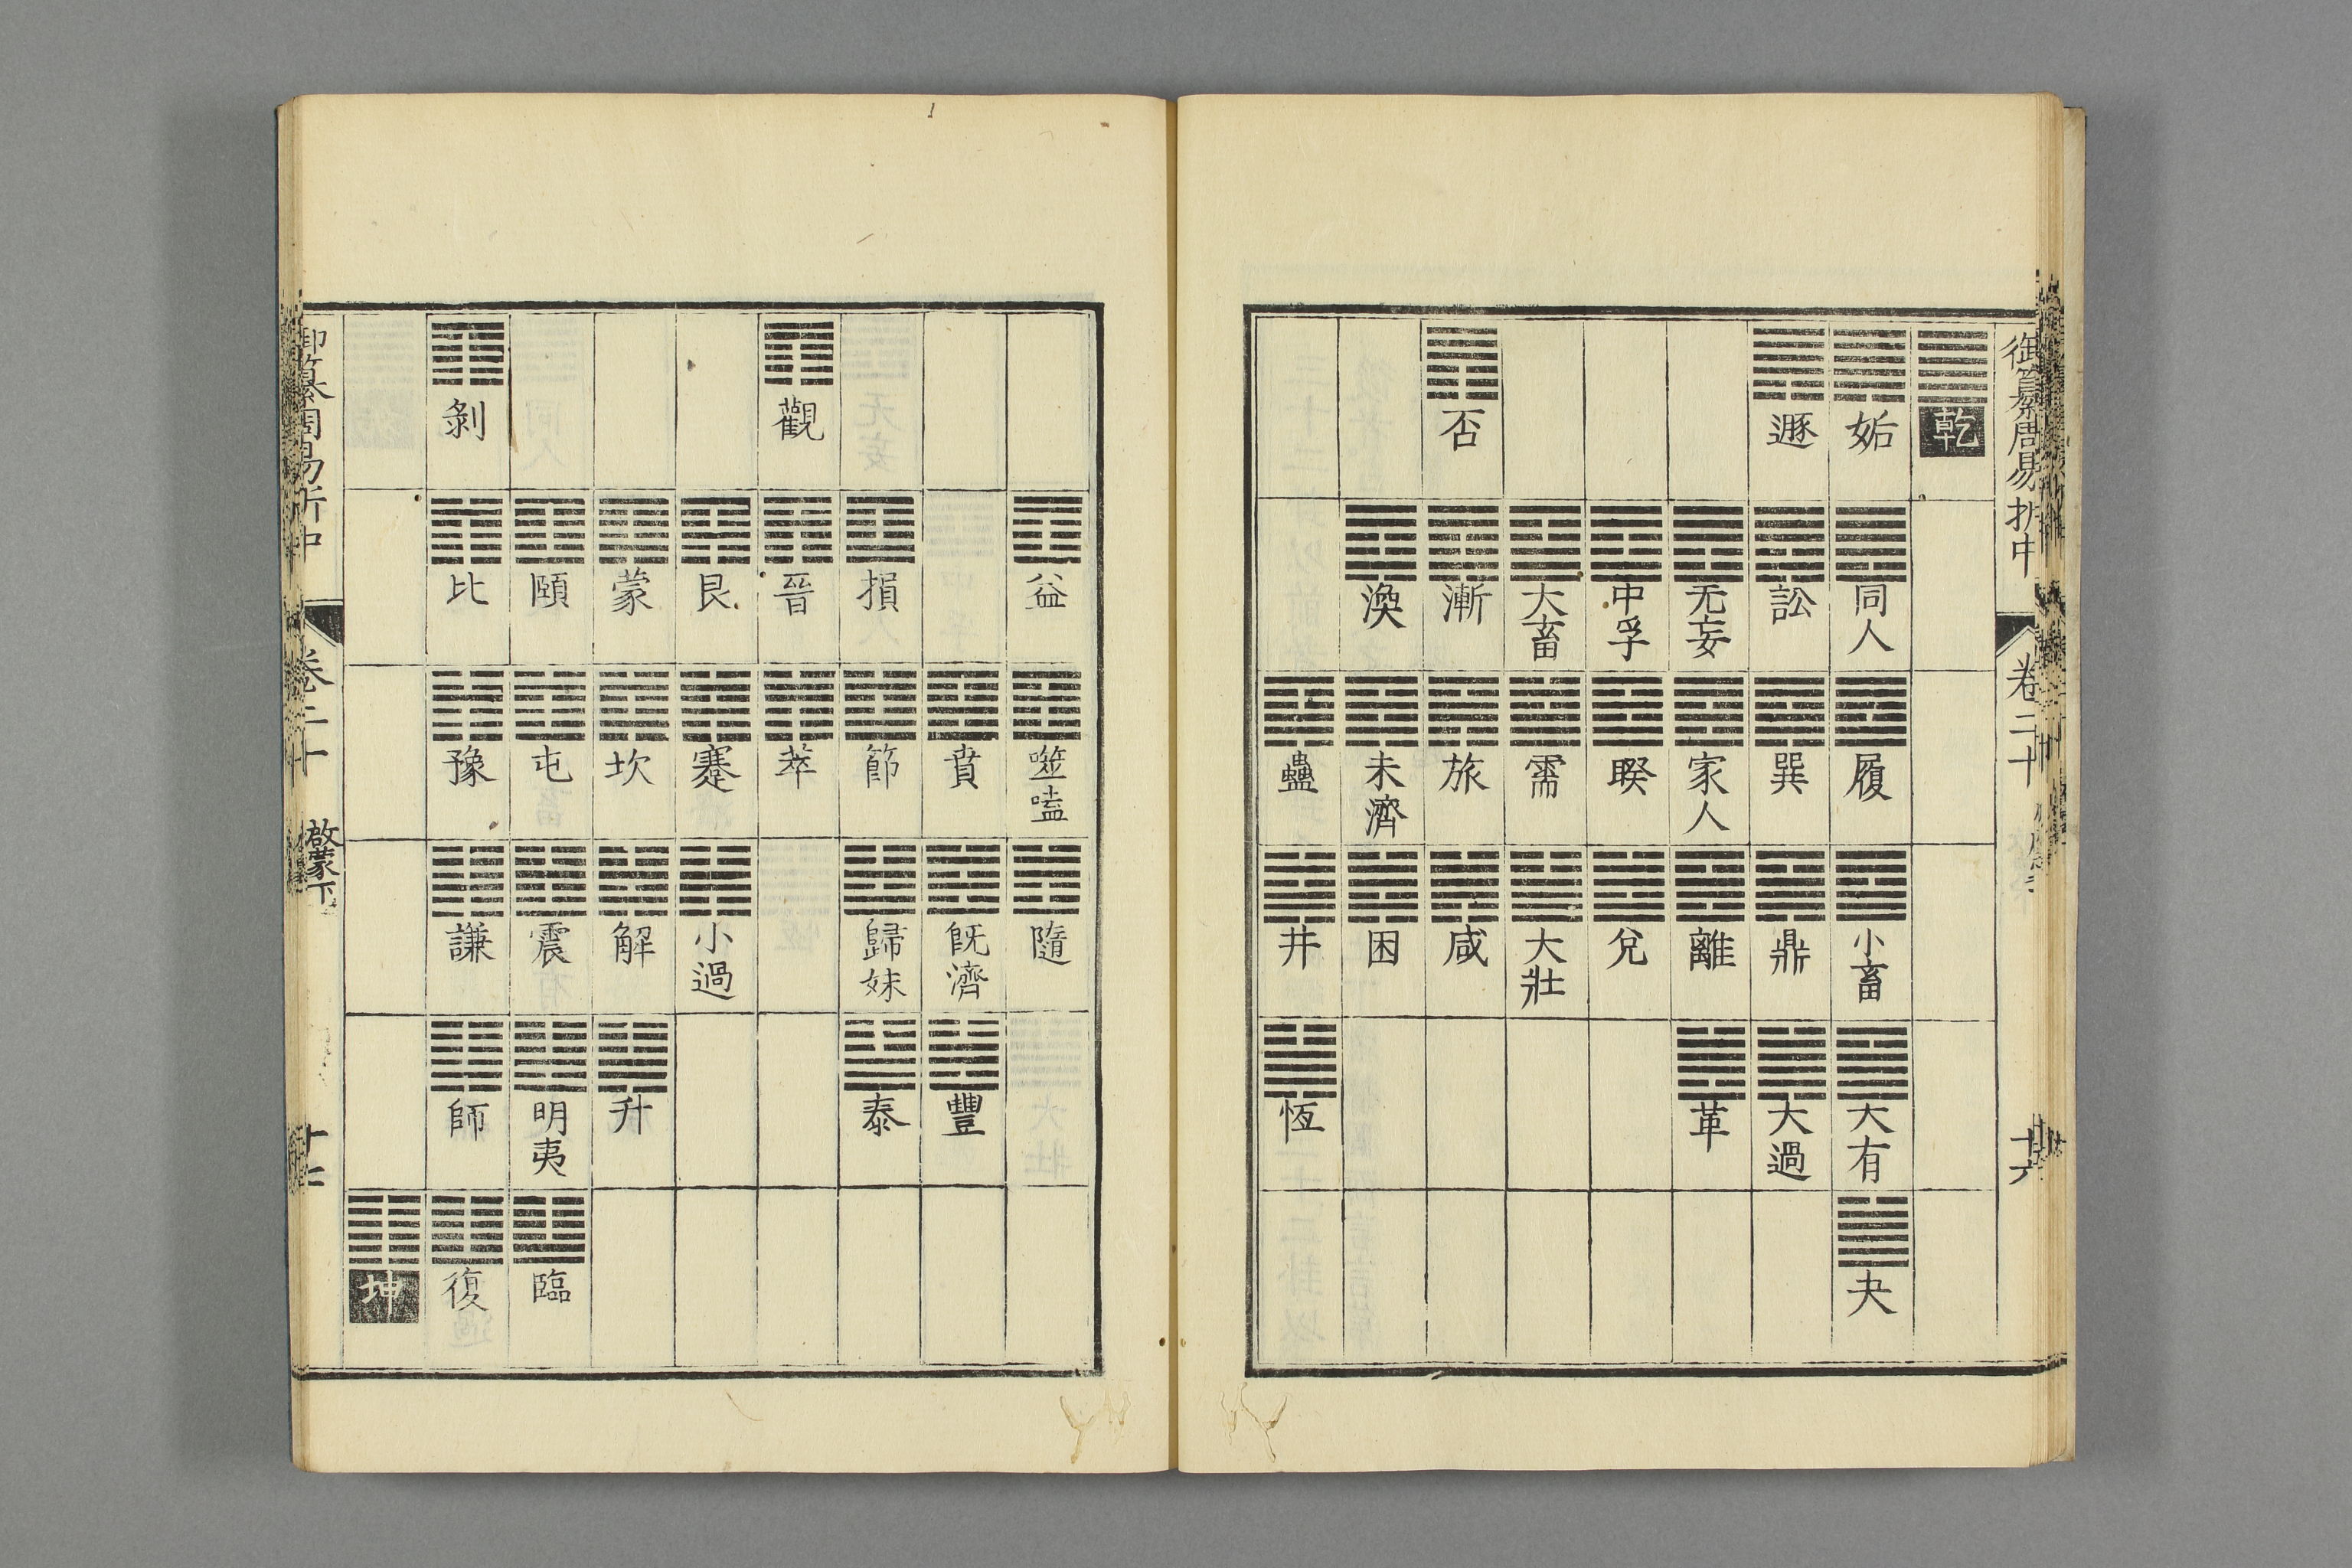 御纂周易折中
卷二十
十六
乾
姤
同人
履
小畜
大有
夬
遯
訟
巽
鼎
大過
无妄
家人
離
革
中孚
睽
兌
大畜
需
大壯
否
漸
旅
咸
渙
未濟
困
蠱
井
恆
益
噬嗑
隨
賁
既濟
豐
損
節
歸妹
泰
觀
晉
萃
艮
蹇
小過
蒙
坎
解
升
頤
屯
震
明夷
臨
剝
比
豫
謙
師
復
坤
御纂周易折中
卷二十
啟蒙下
十七